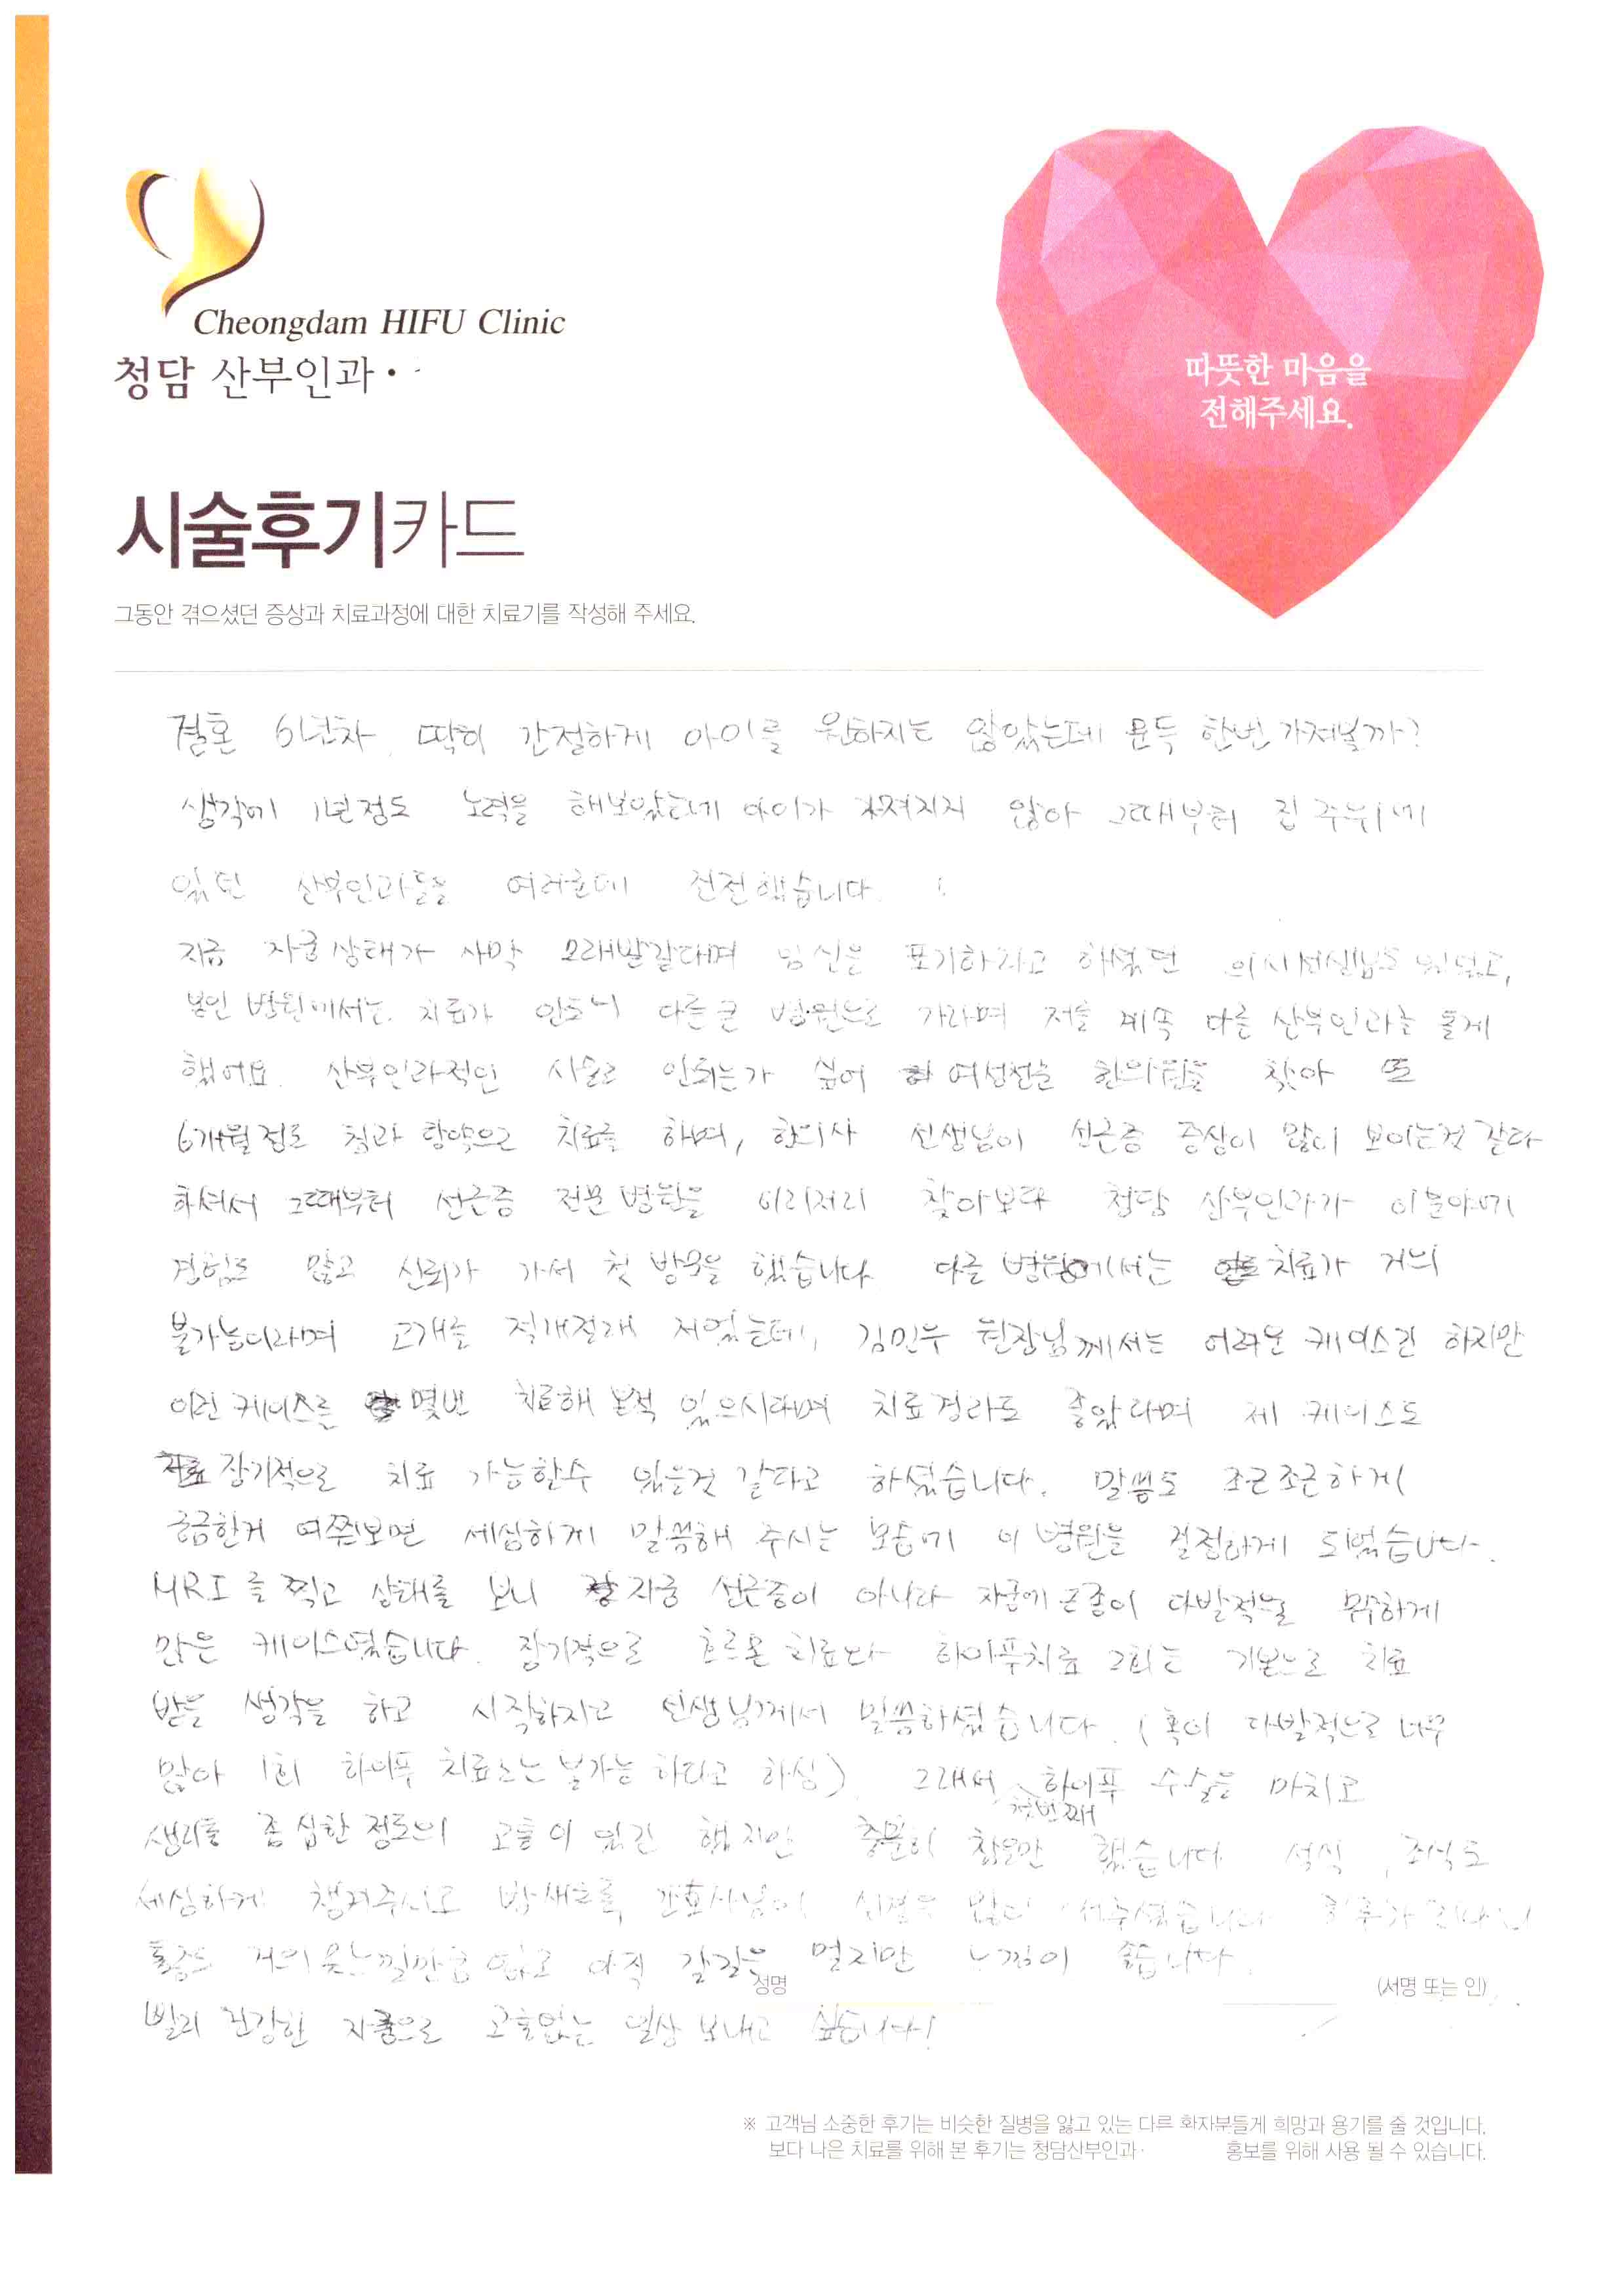 Cheongdam HIFU Clinic
청담 산부인과
따뜻한 마음을
전해주세요.
시술후기카드
그동안 겪으셨던 증상과 치료과정에 대한 치료기를 작성해 주세요.
결혼 6년차. 딱히 간절하게 아이를 원하지는 않았는데 문득 한번 가져볼까?
생각에 1년정도 노력을 해보았는데 아이가 가져지지 않아 그때부터 집 주위에
있던 산부인과들을 여러군데 전전했습니다.
지금 자궁상태가 사막 모래밭같다며 임신을 포기하라고 하셨던 의사선생님도 있었고,
본인 병원에서는 치료가 안되니 다른 큰 병원으로 가라며 저를 계속 다른 산부인과를 돌게
했어요. 산부인과적인 시술로 안되는가 싶어 여성전문 한의원을 찾아 또
6개월정도 침과 한약으로 치료를 하며, 한의사 선생님이 선근증 증상이 많이 보이는것 같다
하셔서 그때부터 선근증 전문병원을 이리저리 찾아보다 청담 산부인과가 이분야에
경험도 많고 신뢰가 가서 첫 방문을 했습니다. 다른 병원에서는 치료가 거의
불가능이라며 고개를 절래절래 저었는데, 김민우 원장님께서는 어려운 케이스긴 하지만
이런 케이스를 몇번 치료해 본적 있으시다며 치료경과도 좋았다며 제 케이스도
장기적으로 치료 가능할수 있을것 같다고 하셨습니다. 말씀도 조근조근하게
궁금한거 여쭤보면 세심하게 말씀해 주시는 모습에 이 병원을 결정하게 되었습니다.
MRI를 찍고 상태를 보니 자궁 선근증이 아니라 자궁에 근종이 다발적으로 무수하게
많은 케이스였습니다. 장기적으로 호르몬 치료와 하이푸치료 2회는 기본으로 치료
받을 생각을 하고 시작하자고 선생님께서 말씀하셨습니다. (혹이 다발적으로 너무
많아 1회 하이푸 치료로는 불가능 하다고 하심) 그래서 첫번째 하이푸 수술을 마치고
생리통 좀 심한 정도의 고통이 있긴 했지만 충분히 참을만 했습니다. 석식, 조식도
세심하게 챙겨주시고 밤새도록 간호사님이 신경을 많이 써주셨습니다. 하루가 지나니
통증도 거의 못느낄만큼 없고 아직 갈길은 멀지만 느낌이 좋습니다.
빨리 건강한 자궁으로 고통없는 일상 보내고 싶습니다!
정명
(서명 또는 인)
※ 고객님 소중한 후기는 비슷한 질병을 앓고 있는 다른 환자분들게 희망과 용기를 줄 것입니다.
보다 나은 치료를 위해 본 후기는 청담산부인과 홍보를 위해 사용 될 수 있습니다.